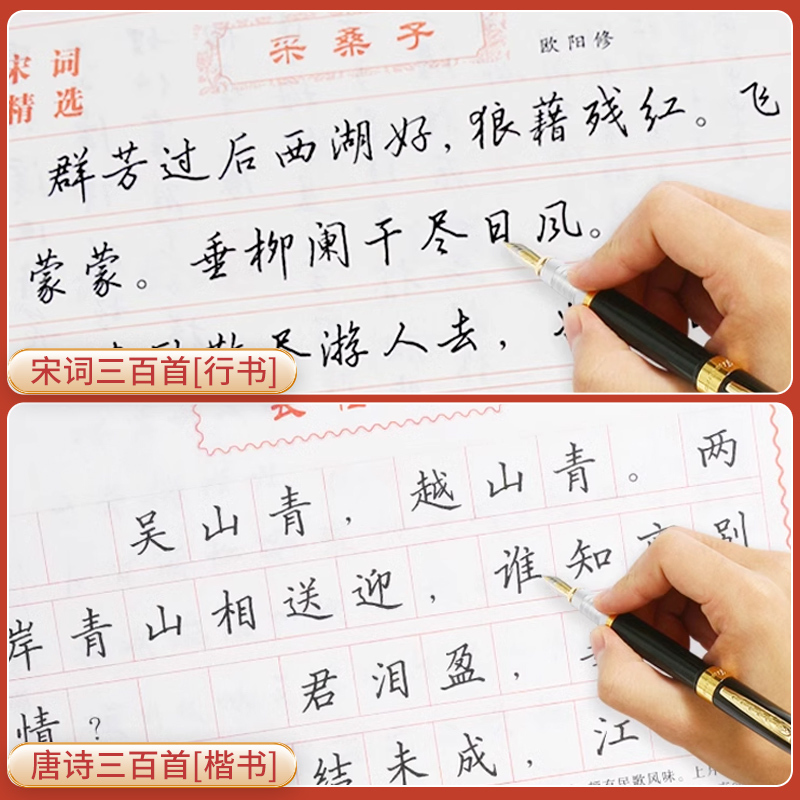 采桑子
欧阳修
宋词
精选
群芳过后西湖好，狼藉残红。飞
蒙蒙。垂柳阑干尽日风。
散尽游人去，
宋词三百首[行书]
吴山青，越山青。两
岸青山相送迎，谁知 别
情？ 君泪盈，
结未成，江
唐诗三百首[楷书]